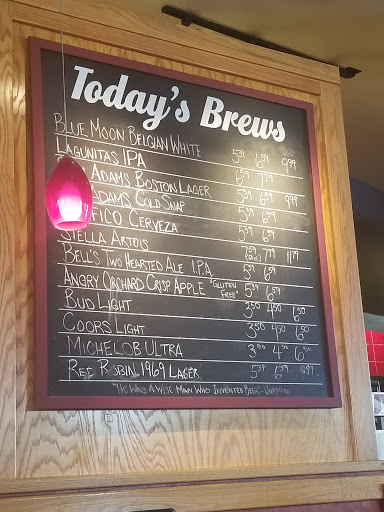 Today's Brews
Blue Moon Belgian White 5.39 6.59 9.99
Lagunitas IPA 6.59 7.79
Adams Boston Lager 5.39 6.59 9.99
Adams Cold Snap 5.39 6.59
fico Cerveza 5.39 6.59
Stella Artois 7.99 11.79
Bell's Two Hearted Ale I.P.A. 5.39 6.59
Angry Orchard Crisp Apple "Gluten Free" 5.39 6.59
Bud Light 3.50 4.50 6.50
Coors Light 3.50 4.50 6.50
Michelob Ultra 3.50 4.50 6.50
Red Robin 1969 Lager 5.39 6.59
"He Was A Wise Man Who Invented Beer" - Unknown